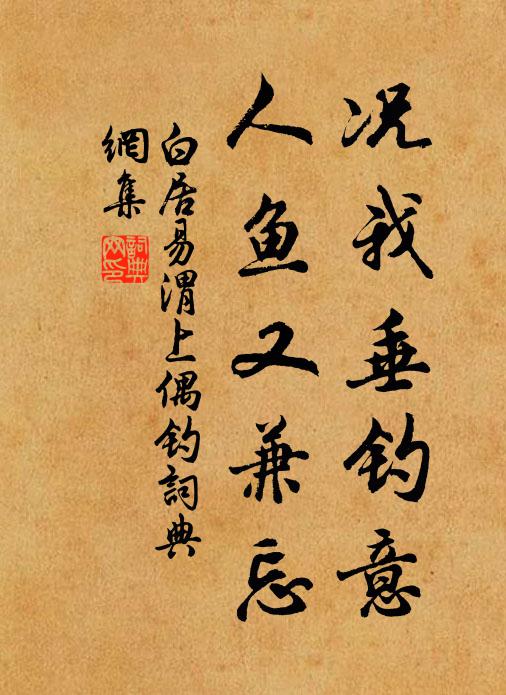 况我垂钓意
人鱼又兼忘
白居易渭上偶钓詞典
網集
詞典
网印